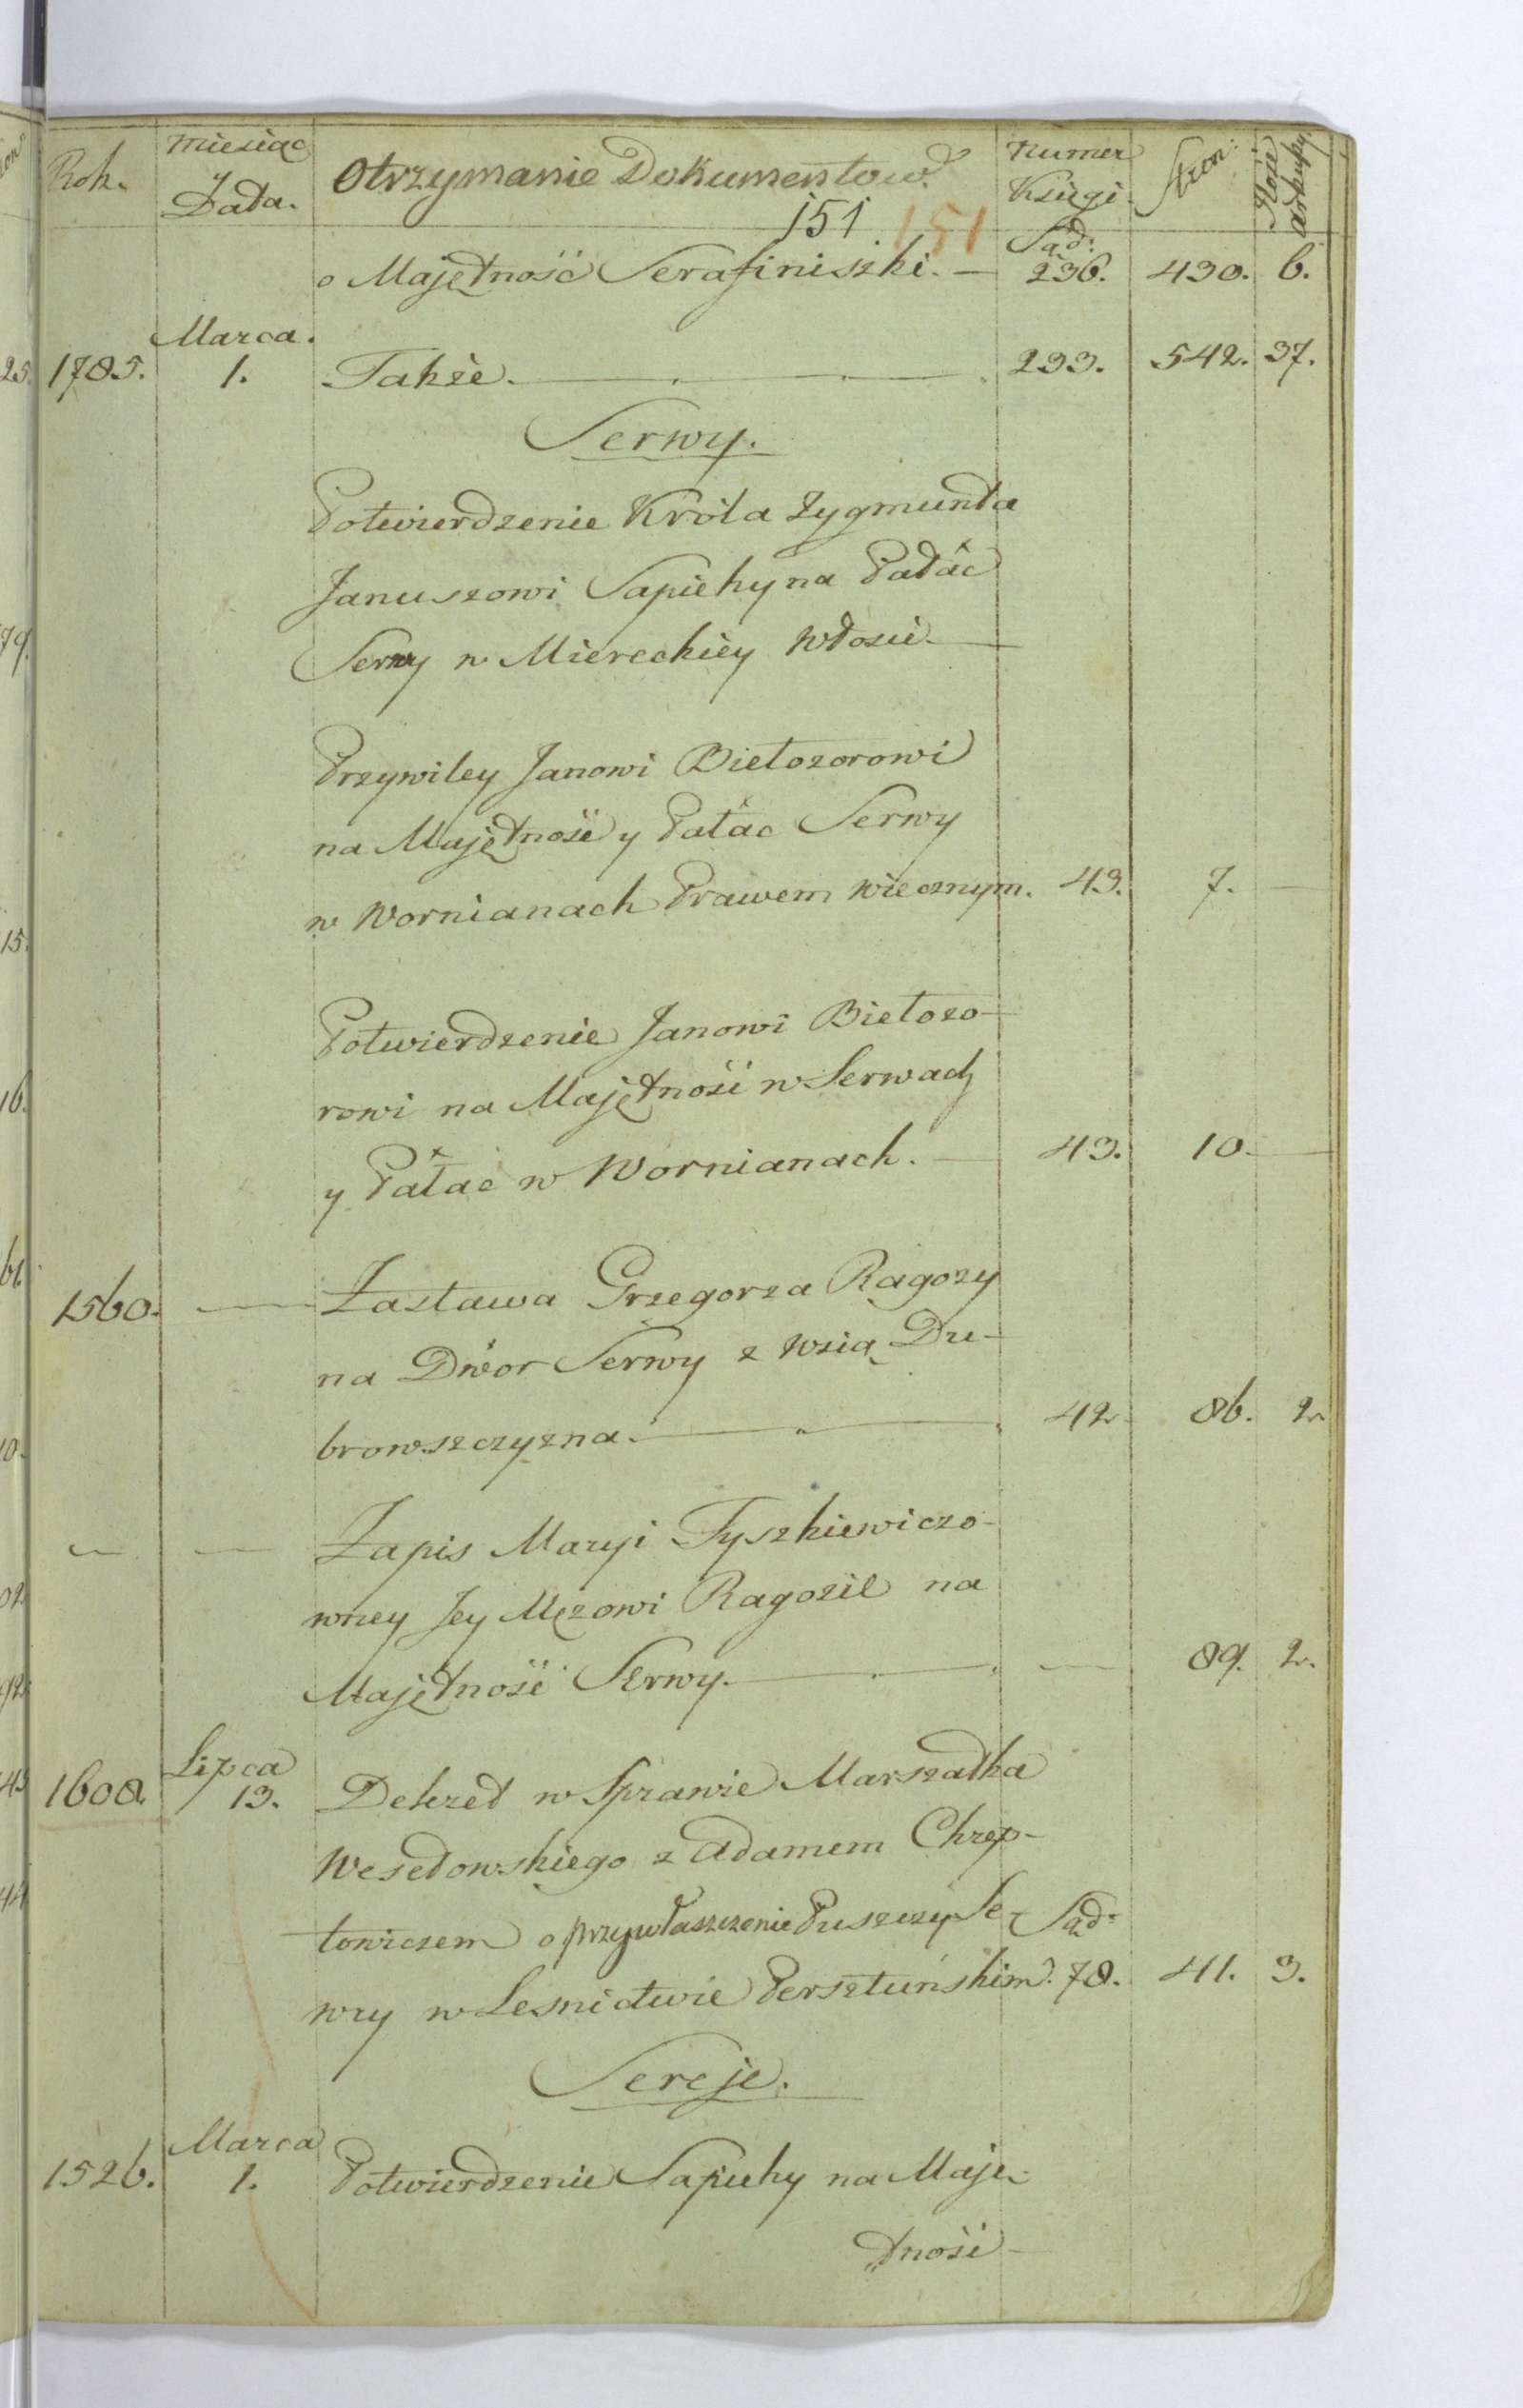 Rok. Miesiąc y Data. Otrzymanie Dokumentow. Numer Księgi. Stron: Ilość arkuszy.
151 151
o Majętność Serafiniszki. — Sąd: 236. 430. 6.
Marca.
1785. 1. Także. — 233. 542. 37.
Serwy.
Potwierdzenie Króla Zygmunta
Januszowi Sapiehy na Pałác
Serwy w Mereckiey Włości —
Przywiley Janowi Białozorowi
na Majętność y Pałac Serwy
w Wornianach Prawem wiecznym. 43. 7. —
Potwierdzenie Janowi Biełozo-
rowi na Majętność w Serwach
y Pałac w Wornianach. — 43. 10. —
1560. — Zastawa Grzegorza Ragozy
na Dwor Serwy z Wsią Du-
browszczyzna. — 42 86. 2.
— — Zapis Maryi Tyszkiewiczo-
wney Jey Mężowi Ragozie na
Majętność Serwy. — — 89. 2.
Lipca
1608. 13. Dekret w Sprawie Marszałka
Wesełowskiego z Adamem Chrep-
towiczem o przywłaszczenie Puszczy Se- Sąd:
wry w Lesnictwie Persztuńskim. 78. 41. 3.
Sereje.
Marca
1526. 1. Potwierdzenie Sapiehy na Maję-
tność —